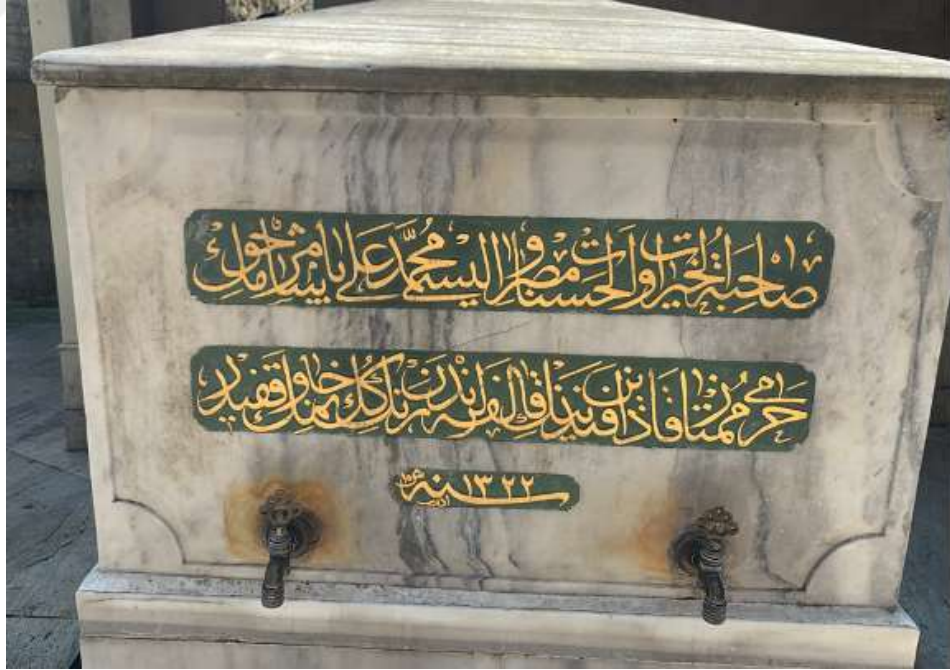 صاحبة الخيرات والحسنات مصر واليسى محمد على پاشا مرحومك
حرمى ممتاز قادين افندينك قالفه لرندن رنك كل خانمك وقفيدر
سنه ١٣٢٢